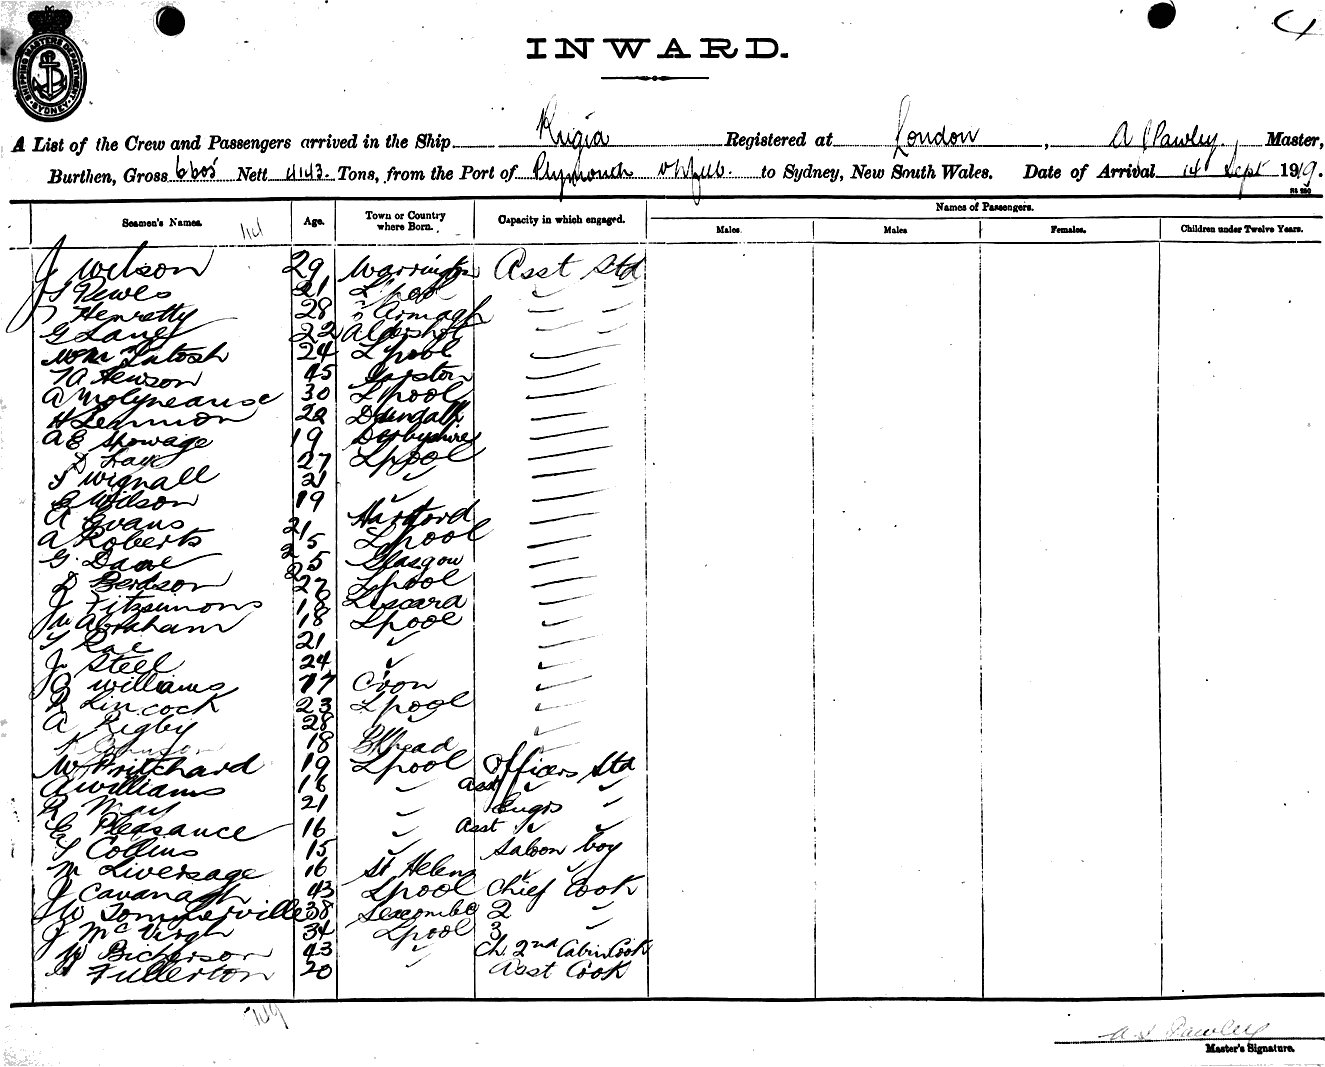 SHIPPING MASTERS DEPARTMENT SYDNEY
INWARD.
A List of the Crew and Passengers arrived in the Ship Registered at London, A Pawley, Master,
Burthen, Gross 6605 Nett 4143 Tons, from the Port of Plymouth to Sydney, New South Wales. Date of Arrival 14 Sept 1919.
Seamen's Names. Age. Town or Country where Born. Capacity in which engaged. Names of Passengers.
Males. Males Females. Children under Twelve Years.
J Wilson 29 Warrington Asst Std
21 L'pool " "
Henretty 28 " Armagh " "
G Laney 22 Aldershot " "
24 L'pool "
Hewson 45 Garston "
A Molyneause 30 L'pool "
H Lennon 22 Dundalk "
A E Spowage 19 Derbyshire "
27 Lpool "
Wignall 21 " "
Wilson 19 " "
A Evans 21 Hartford "
A Roberts 25 Lpool "
G. 25 Glasgow "
27 Lpool "
J Fitzsimons 18 Liscard "
W Abraham 18 Lpool "
Rae 21 " "
J Steel 24 " "
Williams 17 C'von "
R Lincock 23 Lpool "
A Rigby 28 " "
Johnson 18 B'khead "
W Pritchard 19 Lpool Officers Std
A Williams 16 " Asst " "
R May 21 " Engrs "
E Pleasance 16 " Asst " "
T Collins 15 " Saloon boy
M Liversage 16 St Helens " "
J Cavanagh 43 Lpool Chief Cook
W Sommerville 38 Seacombe 2 "
J McVirgh 34 Lpool 3 "
W Bickerson 43 " Ch. 2nd Cabin Cook
Fullerton 20 " Asst Cook
A S Pawley
Master's Signature.